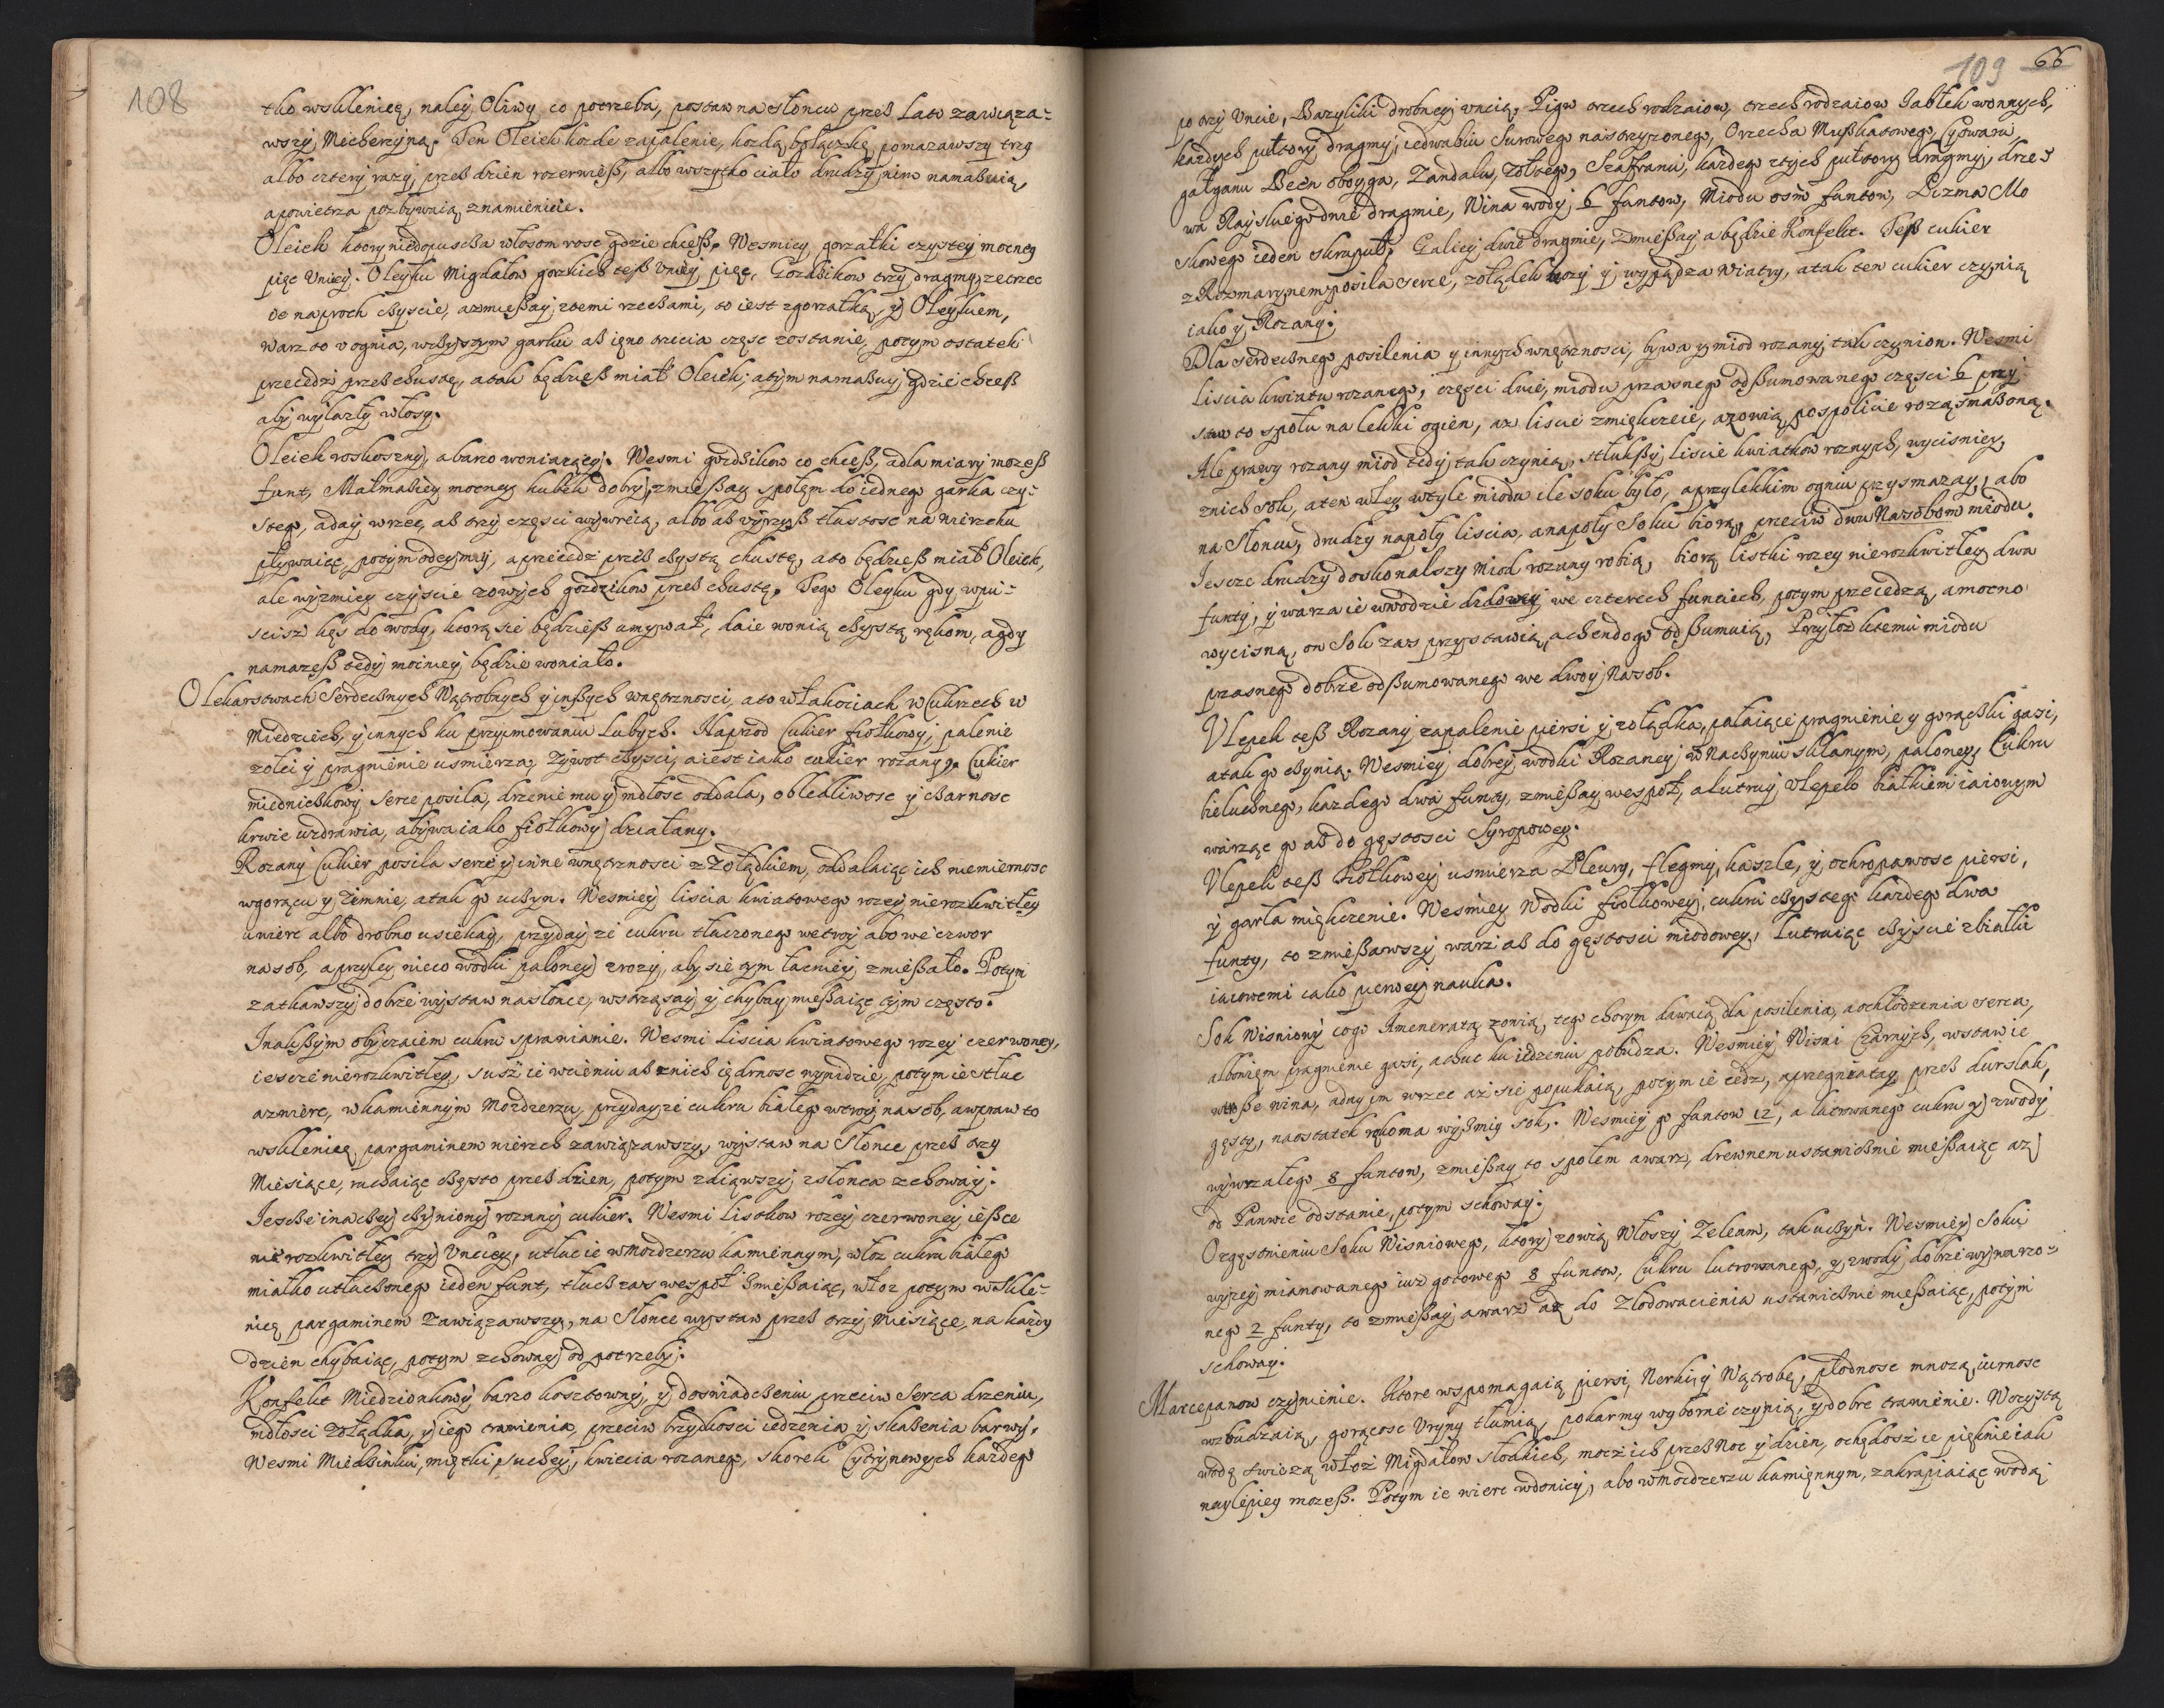 108
tko wsklenicę, naley Oliwy co potrzeba, postaw na słońcu przeß Lato zawiąza-
wszy Mecherzyną. Ten Oleiek kożde zapalenie, kożdą bolączkę, pomazawszy trzy
albo cztery razy, przeß dzien rozerwieß, albo wszytko ciało drudzy nim namaßuią,
apowietrza pozbywaią znamienicie.
Oleiek ktory niedopuscßa włosom rosc gdzie chceß. Wesmiey gorzałki czystey mocney
pięc Unciey. Oleyku Migdałow gorzkich teß Unciy pięc, Gozdzikow trzy dragmy, zetrzec
ie naproch cßyscie, azmießay ztemi rzecßami, to iest zgorzałką, y Oleykiem,
warz to v ognia, wcßyszym garku aß ięno trzecia częsc zostanie, potym ostatek
przecedzi przeß chustę, atak będzieß miał Oleiek, atym namaßuy gdzie chceß
aby wylazły włosy.
Oleiek roskoszny, abarzo woniaiący. Wesmi gozdzikow co chceß, adla miary możeß
funt, Małmaßiey mocney kubek dobry, zmießay społem do iednego garka czy-
stego, aday wrzec, aß trzy częsci wywreią, albo aß vyrzyß tłustosc na wierzchu
pływaiąc, potym odeymiy, aprzecedz przeß cßystą chustę, ato będzieß miał Oleiek,
ale wyzmiey czyscie zowych gozdzikow przeß chustę. Tego Oleyku gdy wpu-
scisz kęs do wody, ktorą sie będzieß umywał, daie wonią cßystą rękom, agdy
namażeß tedy mocniey będzie woniało.
O Lekarstwach Serdecßnych Wątrobnych y inßych wnętrznosci, ato w Łakociach w Cukrzech w
Miedziech, y innych ku przyimowaniu Lubych. Naprzod Cukier fiołkowy, palenie
żołci y pragnienie usmierza, Żywot cßysci, aiest iako cukier rożany. Cukier
miednicßkowy Serce posila, drżenie mu y mdłosc oddala, obledliwosc y cßarnosc
krwie uzdrawia, abywa iako fiołkowy działany.
Rozany Cukier posila serce y inne wnętrznosci z Zołądkiem, oddalaiąc ich niemiernosc
wgorącu y Zimnie, atak go ucßyn. Wesmiey liscia kwiatowego rozey nierozkwitłey
uwierc albo drobno usiekay, przyday ze cukru tłuczonego wetroy abo we czwor
nasob, aprzyley nieco wodki paloney z rozy, aby sie tym łacniey zmießało. Potym
zatkawszy dobrze wystaw nasłonce, wstrząsay y chybay mießaiąc tym często.
Inakßym obyczaiem cukru sprawianie. Wesmi Liscia kwiatowego rozey czerwoney,
iescze nierozkwitłey, susz ie wcieniu aß znich iędrnosc wynidzie, potym ie stluc
azwierc, wkamiennym Mozdzerzu, przyday ze cukru białego wtroy nasob, awpraw to
wsklenicę, pargaminem wierzch zawiązawszy, wystaw na Słonce przeß trzy
Miesiące, ruchaiąc cßęsto przeß dzien, potym zdiąwszy zsłonca zchoway.
Iescße inacßey cßyniony rozany cukier. Wesmi listkow rozey czerwoney ießce
nierozkwitłey trzy Unciey, utłucie wmozdzerzu kamiennym, włoz cukru białego
miałko utłucßonego ieden funt, tłucß zas wespoł zmießaiąc, włoz potym w Skle-
nicę pargaminem Zawiązawszy, na Słonce wystaw przeß trzy Miesiące, na kazdy
dzien chybaiąc, potym zchoway od potrzeby.
Konfekt Miedzionkowy barzo kosztowny, y doswiadcßenia przeciw Serca drżeniu,
mdłosci żołądka, y iego trawienia, przeciw brzydkosci iedzenia y skaßenia barwy.
Wesmi Miedßinku, mięłki suchey, kwiecia rozanego, skorek Cytrynowych każdego
109 66
po trzy Uncie, Bazyliki drobney uncią, Pigw trzech rodzaiow, trzech rodzaiow Iabłek wonnych,
kazdych pułtory dragmy, iedwabiu Surowego nastrzyzonego, Orzecha Mußkatowego, Cytwaru,
gałganu Been oboyga, Zandału, żołtego, Szafranu, każdego ztych pułtory dragmy, drze-
wa Rayskiego dwie dragmie, Wina wody 6 funtow, Miodu osm funtow, Pizma Mo
skowego ieden skrupuł, Galiey dwie dragmie, Zmießay a będzie Konfekt. Teß cukier
z Rozmarynem posila serce, żołądek tuży y wypądza Wiatry, atak ten cukier czynią
iako y Rozany.
Dla serdecßnego posilenia y innych wnętrznosci, bywa y miod rozany tak czynion. Wesmi
Liscia kwiatu rozanego, częsci dwie, miodu przasnego odßumowanego częsci 6 przy
staw to społu na lekki ogien, az liscie zmiękczeie, azowią pospolicie rożą smażoną.
Ale prawy rozany miod tedy tak czynią, stlukßy liscie kwiatkow roznych, wycisniey
znich sok, aten wley wtyle miodu ile soku było, aprzylekkim ogniu przysmazay, abo
na Słoncu, drudzy napoły liscia, anapoły Soku biorą, przeciw dwu Nasobom miodu.
Iescze drudzy doskonalszy Miod rozany robią, biorą listki rozey nierozkwitłey dwa
funty, y warza ie wwodzie dżdżowey we czterech funciech, potym przecedzą, amocno
wycisną, on Sok zas przystawią, achendogo odßumuią, Przyłoż ktemu miodu
przasnego dobrze odßumowanego we dwoy Nasob.
Ulepek teß Rozany zapalenie piersi y żołądka, pałaiące pragnienie y gorącßki gasi,
atak go cßynią. Wesmiey dobrey wodki Rozaney w Nacßyniu sklanym, paloney, Cukru
bielucßnego, kazdego dwa funty, zmießay wespoł, alutruy Vlepek białkiem iaiowym
warząc go aß do gęstosci Syropowey.
Vlepek teß Fiołkowey usmierza Pleury, flegmy, kaszle, y ochropawosc piersi,
y garła miękczenie. Wesmiey Wodki fiołkowey, cukru cßystego każdego dwa
funty, to zmießawszy warz aß do gęstosci miodowey, Lutruiąc cßyscie zbiałki
iaiowemi iako pierwey nauka.
Sok Wisniowy cogo Amenerata zowią, tego chorym dawaią dla posilenia, aochłodzenia serca,
albowięm pragnienie gasi, achuc ku iedzeniu pobudza. Wesmiey Wisni Czarnych, wstaw ie
wteße wina, aday im wrzec aż sie popukaią, potym ie cedz, aprzegniatay przeß durslak,
gęsty, naostatek rękoma wyżmiy sok. Wesmiey go funtow 12, a lutrowanego cukru y zwody
wywrzałego 8 funtow, zmießay to społem awarz, drewnem ustawicßnie mießaiąc aż
od Panwie odstanie, potym schoway.
O zgęstnieniu Soku Wisniowego, ktory zowią Włoszy Zeleam, tak ucßyn. Wesmiey Soku
wyzey mianowanego iuz gotowego 8 funtow, Cukru lutrowanego, y zwody dobrze wywarzo-
nego 2 funty, to zmießay awarz aż do Zlodowacienia ustawicßnie mießaiąc, potym
schoway.
Marcepanow czynienie. Ktore wspomagaią piersi, Nerki, y Wątrobę, płodnosc mnożą, iurnosc
wzbudzaią, gorącosc Uryny tłumią, pokarmy wyborne czynią, y dobre trawienie. Wczystą
wodę swieżą włoż Migdałow słodkich, mocz ich przeß Noc y dzien, ochędosz ie pięknie iak
naylepiey możeß. Potym ie wierc wdonicy, abo wmozdzerzu kamiennym, zakrapiaiąc wodą